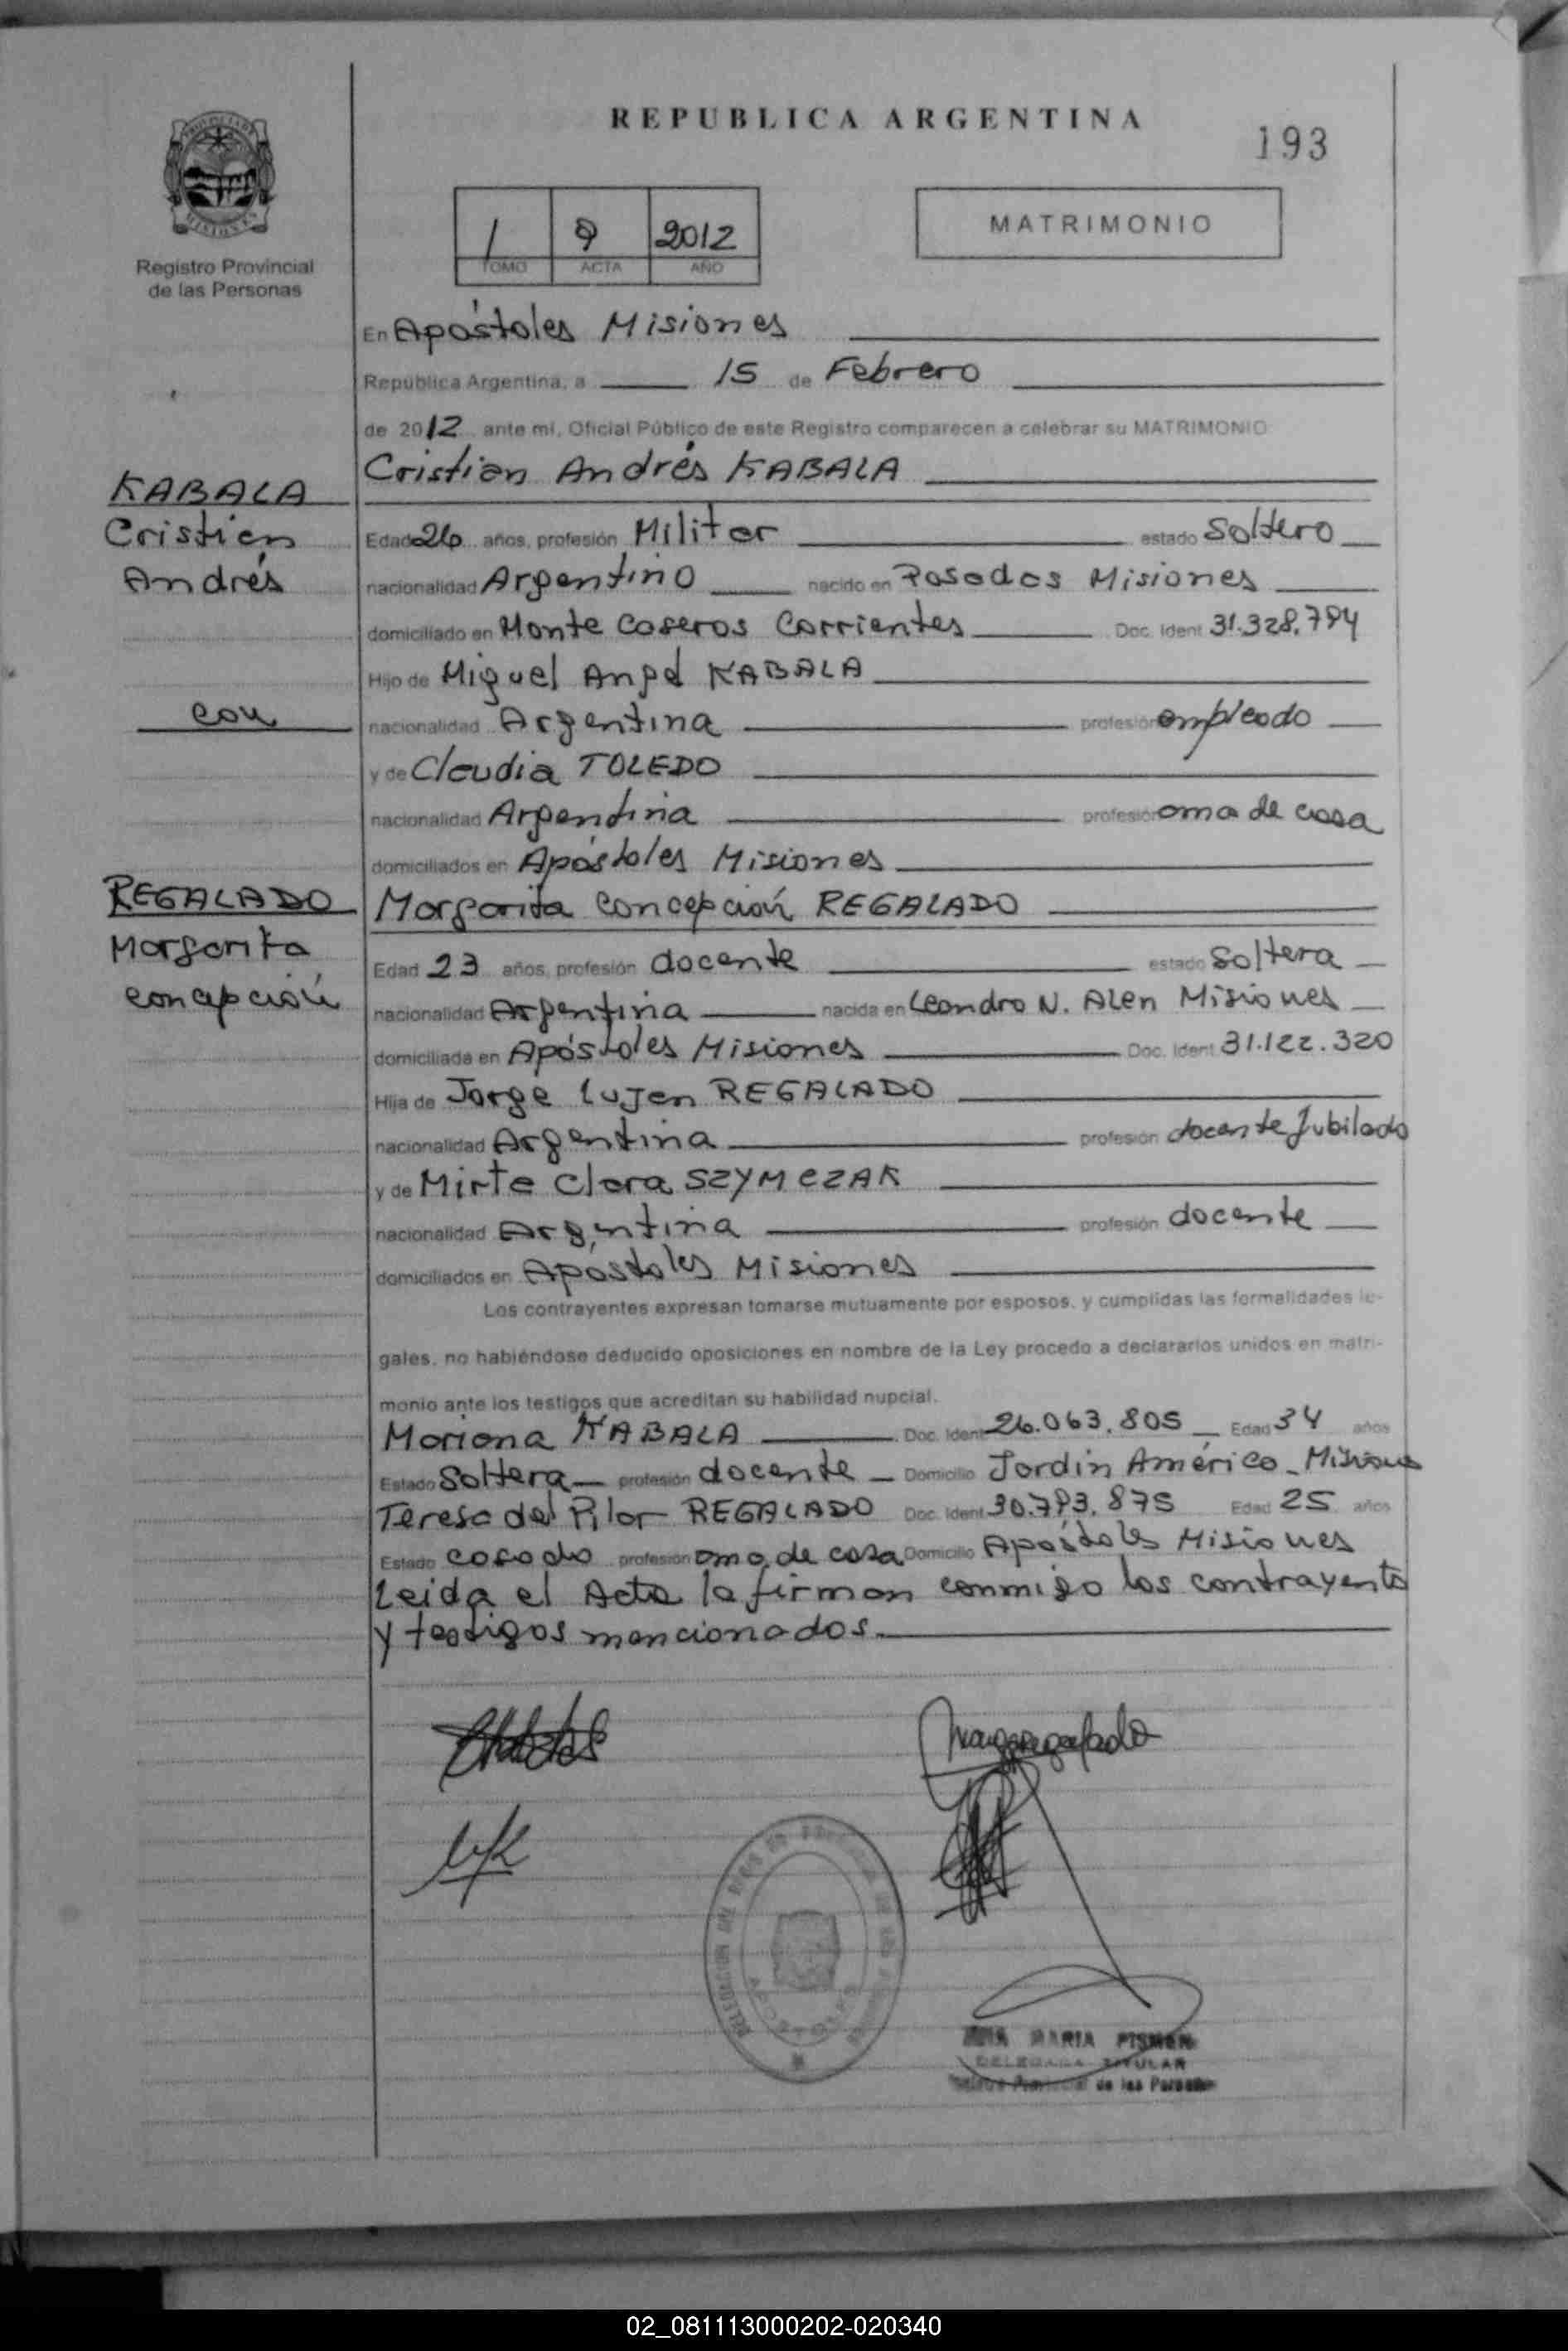 REPUBLICA ARGENTINA
193
MATRIMONIO
1 9 2012
TOMO ACTA AÑO
Registro Provincial
de las Personas
En Apóstoles Misiones
República Argentina, a 15 de Febrero
de 2012 ante mí, Oficial Público de este Registro comparecen a celebrar su MATRIMONIO
Cristian Andrés KABALA
KABALA
Cristian
Andrés
Edad 26 años, profesión Militar estado Soltero
nacionalidad Argentino nacido en Posadas Misiones
domiciliado en Monte Caseros Corrientes Doc. Ident 31.328.794
Hijo de Miguel Angel KABALA
con
nacionalidad Argentina profesión empleado
y de Claudia TOLEDO
nacionalidad Argentina profesión ama de casa
domiciliados en Apóstoles Misiones
REGALADO
Margarita
Concepción
Margarita Concepción REGALADO
Edad 23 años, profesión docente estado Soltera
nacionalidad Argentina nacida en Leandro N. Alen Misiones
domiciliada en Apóstoles Misiones Doc. Ident 31.122.320
Hija de Jorge Lujan REGALADO
nacionalidad Argentina profesión docente Jubilado
y de Mirta Clara SZYMCZAK
nacionalidad Argentina profesión docente
domiciliados en Apóstoles Misiones
Los contrayentes expresan tomarse mutuamente por esposos, y cumplidas las formalidades le-
gales, no habiéndose deducido oposiciones en nombre de la Ley procedo a declararlos unidos en matri-
monio ante los testigos que acreditan su habilidad nupcial.
Mariana KABALA Doc. Ident 26.063.805 Edad 34 años
Estado Soltera profesión docente Domicilio Jardín América - Misiones
Teresa del Pilar REGALADO Doc. Ident 30.793.875 Edad 25 años
Estado casada profesión ama de casa Domicilio Apóstoles Misiones
Leida el Acta la firman conmigo los contrayentes
y testigos mencionados.
ANA MARIA PISMAN
DELEGADA TITULAR
de las Personas
02_081113000202-020340